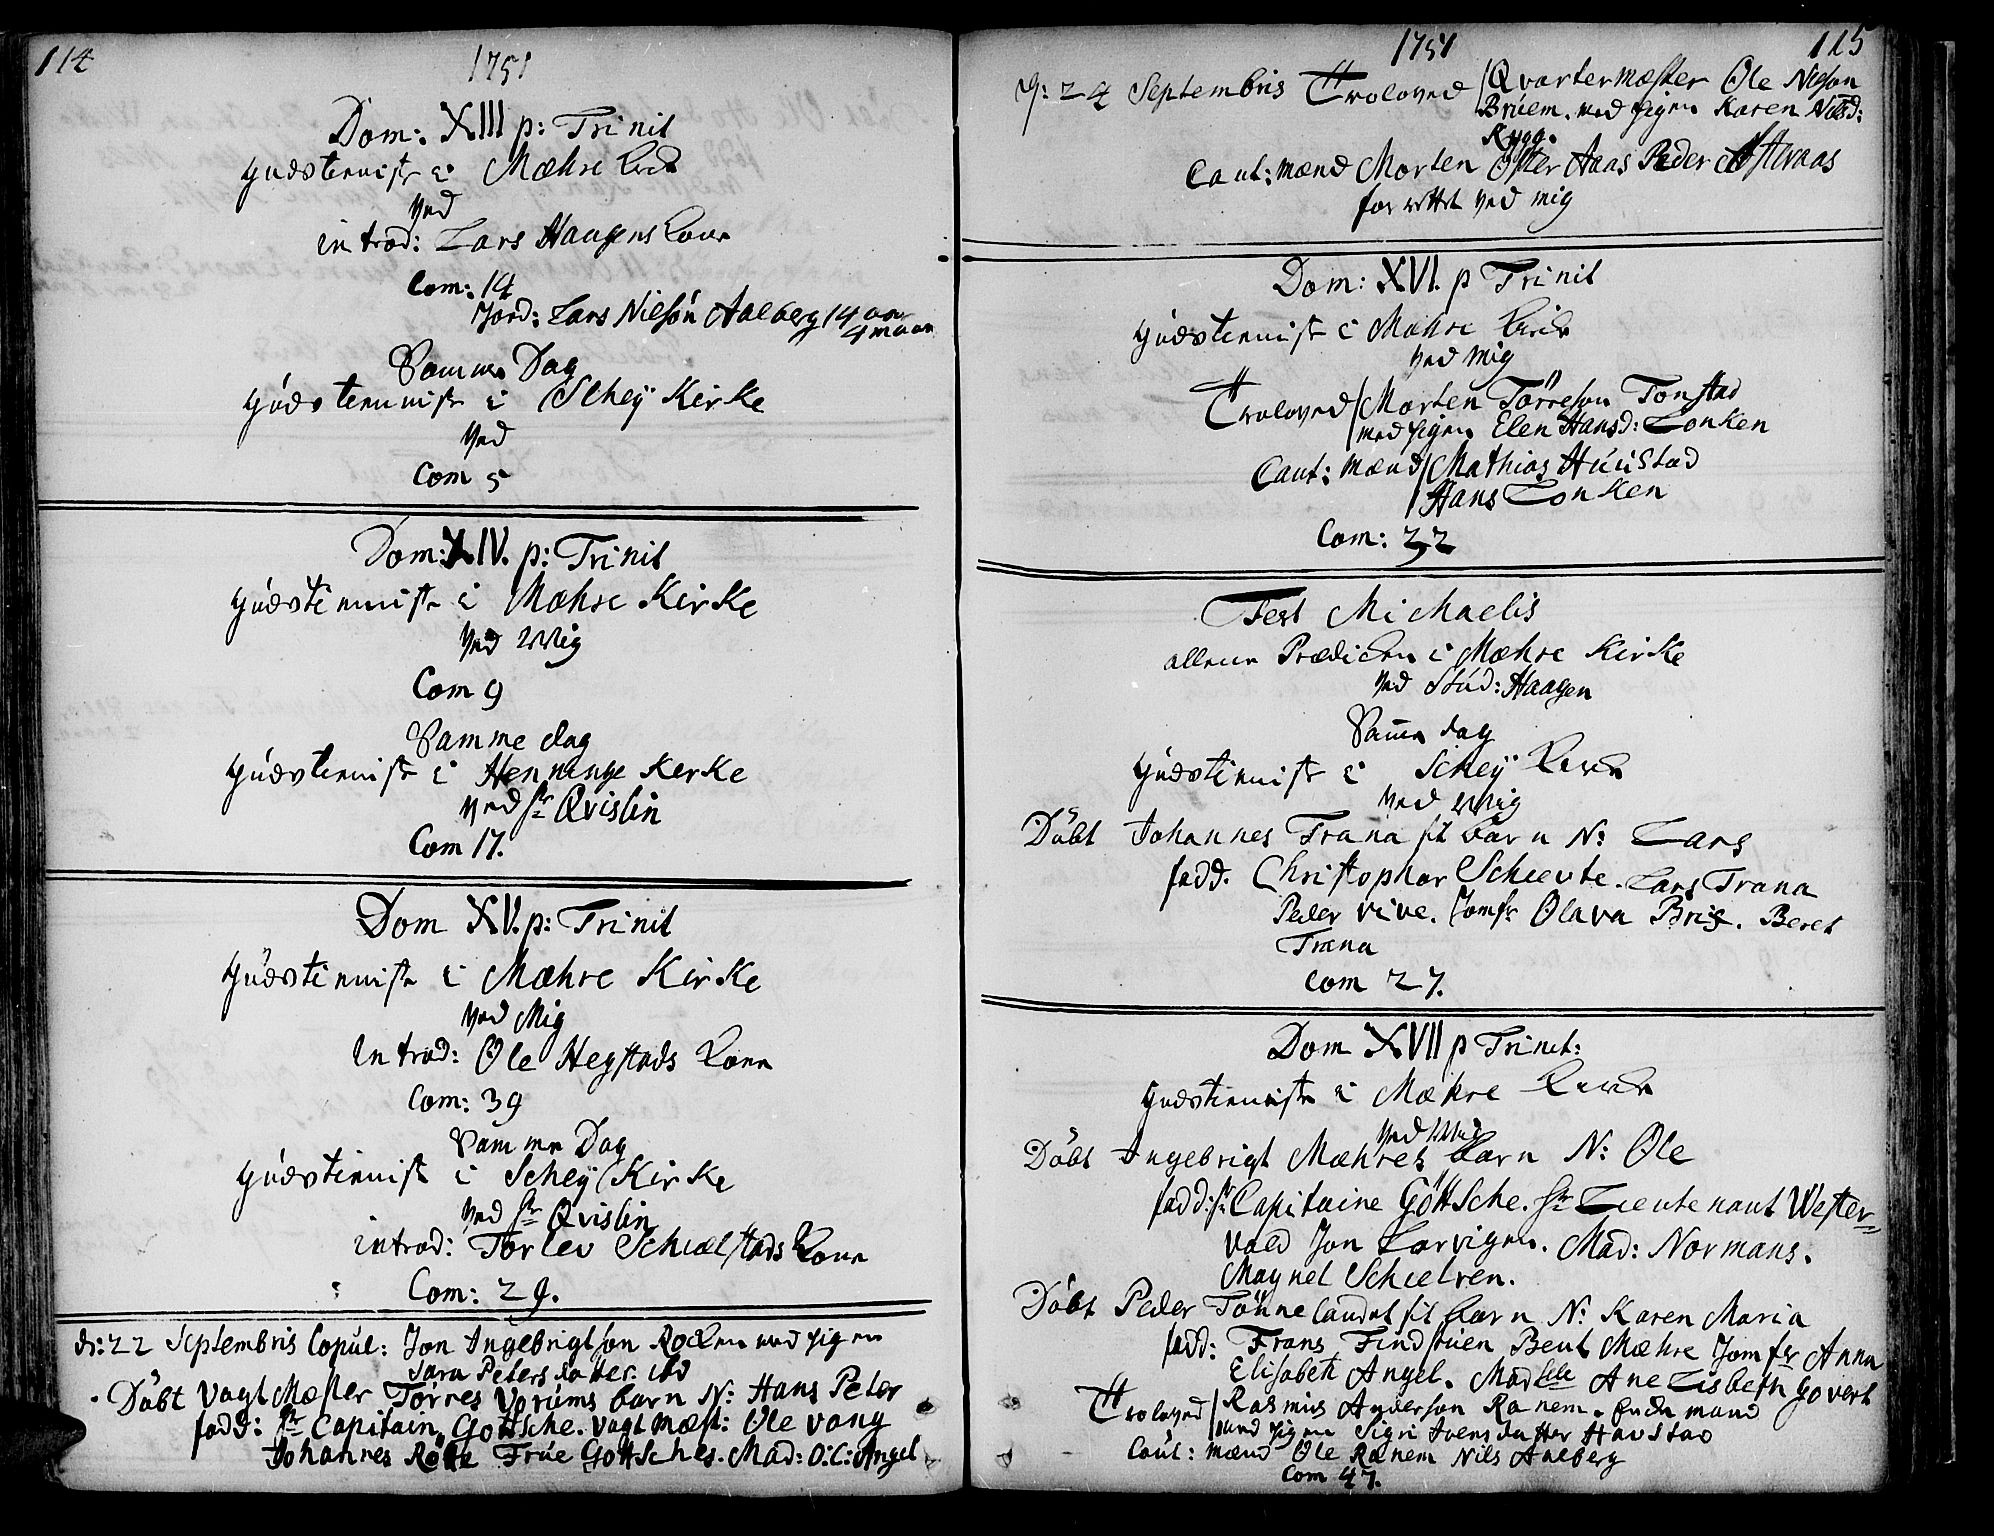 114
1751
Dom: XIII p: Trinit
Gudstienist i Mæhre Kirke
ved
introd: Lars Haugens Kone
Com: 14
Jord: Lars Nilsøn Aalberg 14 aar
4 maan
Samme Dag
Gudstienist i Schey Kirke
ved
Com 5
Dom: XIV. p: Trinit
Gudstienist i Mæhre Kirke
ved Mig
Com 9
Samme dag
Gudstienist i Henninge Kerke
ved Hr Qvislin
Com 17.
Dom XV. p: Trinit
Gudstienist i Mæhre Kirke
ved Mig
introd: Ole Hegstads Kone
Com: 39
Samme Dag
Gudstienist i Schey Kirke
ved Hr Qvislin
introd: Torlev Schielstads Kone
Com: 29.
d: 22 Septembris Copul: Jon Ingebrigtsøn med Pigen
Sara Peters datter. ibd
Døbt Vagt Mæster Tørres Vorums barn N: Hans Peter
fadd: Hr Capitain Gottsche. Vagt mæst: Ole Vang
Johannes Røtte Frue Gottsches. Mad: O: C: Angel
1751
115
d: 24 Septembris Troloved Qvartermæster Ole Nilsøn
Bruem. med Pigen Karen Nilsd:
Rygg.
Caut: mænd Morten Øster Aas Peder Aasteraas
forrettet ved mig
Dom: XVI. p Trinit
Gudstienist i Mæhre Kirke
ved Mig
Troloved Morten Tørresøn Tonstad
med Pigen Elen Hansd: Lonken
Caut: mænd Mathias Huustad
Hans Lonken
Com: 22
Fest Michaelis
allene Prædicken i Mæhre Kirke
ved Stud: Haagen
Samme dag
Gudstienist i Schey Kirke
ved Mig
Døbt Johannes Trana sit barn N: Lars
fadd. Christopher Schievte. Lars Trana
Peder Vive. Jomfr Olava Brix. Beret
Trana
Com 27.
Dom XVII p Trinit:
Gudstienist i Mæhre Kirke
ved Mig
Døbt Ingebrigt Mæhres barn N: Ole
fadd: Hr Capitaine Gøttsche. Hr Lieutenant Wester=
vald Jon Larvigen. Mad: Normans.
Magnel Schielren.
Døbt Peder Tønne landet sit barn N: Karen Maria
fadd: Frans Findstuen Bent Mæhre Jomfr Anna
Elisabeth Angel. Mad lle Ane Lisbeth Govert
Troloved Rasmus Andersøn Ranem. Enke mand
med Pigen Sigri Ivers datter Havstad
Caut: mænd Ole Ranem Nils Aalberg
Com 47.